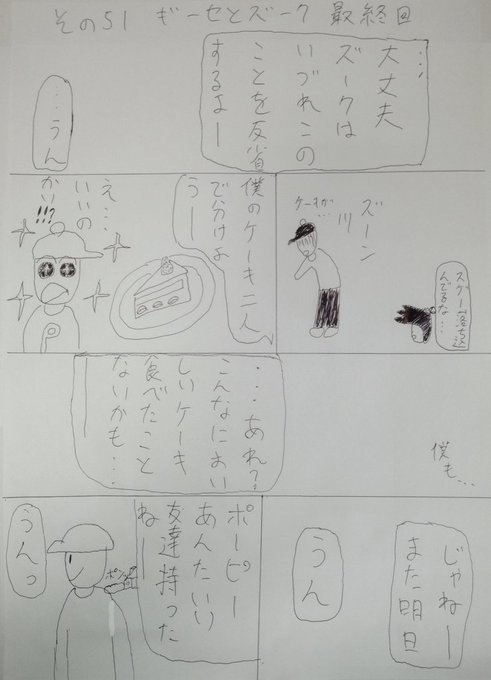 その51 ギーセとズーク 最終回
…大丈夫
ズークは
いづれこの
ことを反省
するよー
…うん
ズーン
ケーキが…
スゲー落ち込
んでるな…
僕のケーキ二人
で分けよ
うー
え…
いいの
かい!!?
P
僕も…
…あれ?
こんなにおい
しいケーキ
食べたこと
ないかも…
じゃねー
また明日
うん
ポーピー
あんたいい
友達持った
ねー
ポン
うんっ